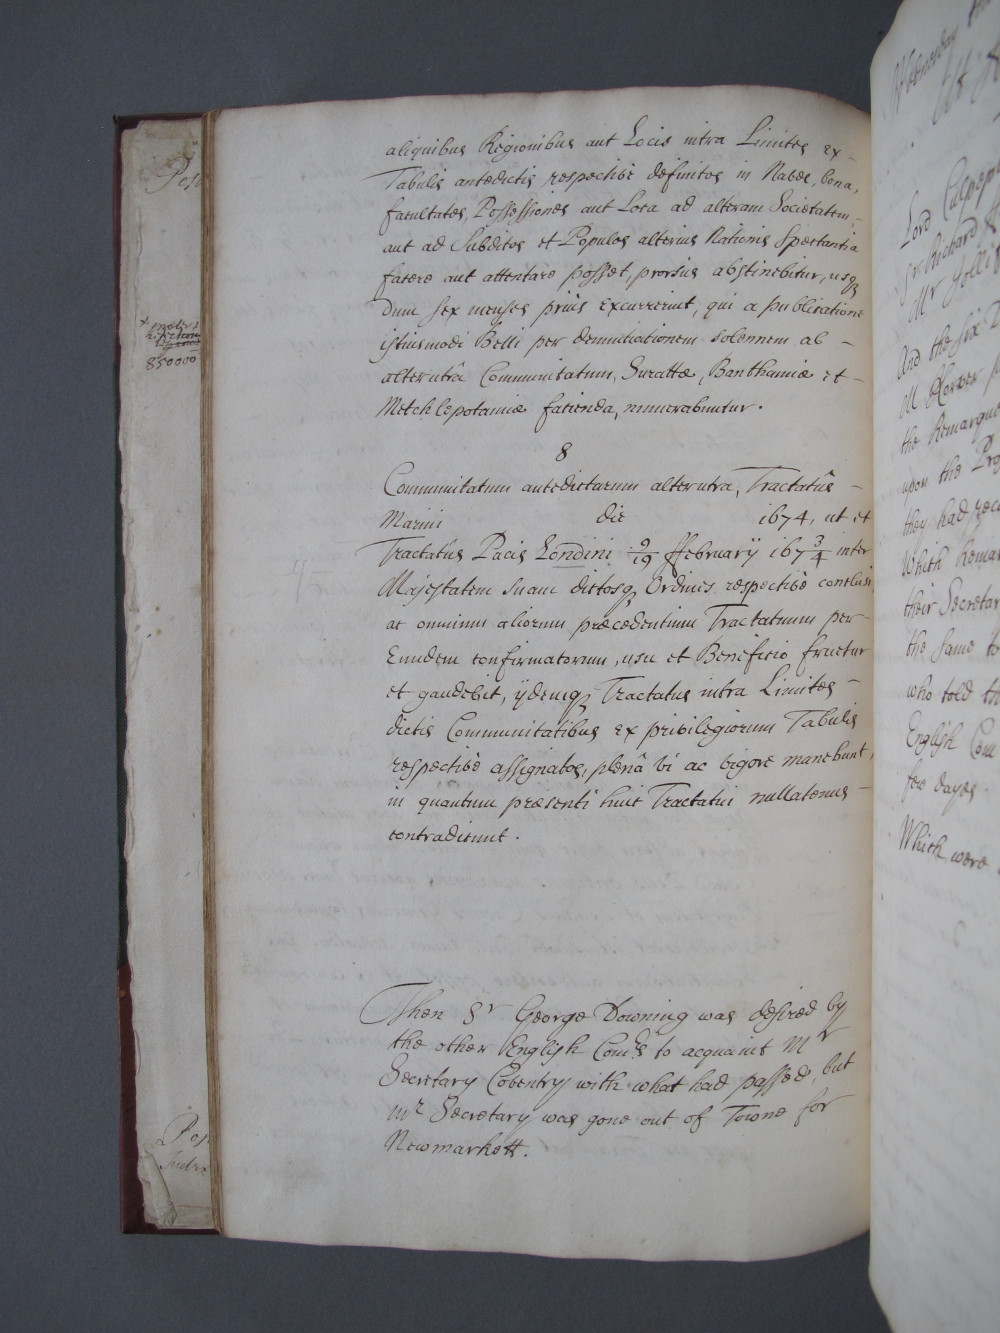 aliquibus Regionibus aut Locis intra Limites ex-
Tabulis antedictis respectivè definitos in Naves, bona,
facultates, Possessiones aut Loca ad alteram Societatem-
aut ad Subditos et Populos alterius Nationis Spectantia
facere aut attentare posset, prorsus abstinebitur, usq
dum sex menses prius excurrerint, qui a publicatione
istiusmodi Belli per denuntiationem solennem ab -
alterutrâ Communitatum, Surattæ, Banthamiæ et-
Metchlepotamiæ facienda, numerabuntur.
8
Communitatum antedictarum alterutra, Tractatûs -
Marini die 1674, ut et
Tractatûs Pacis Londini 9/19 ffebruarÿ 167 3/4 inter
Majestatem suam dictosq Ordines respectivè conclusi
ac omnium aliorum præcedentium Tractatuum per-
Eundem confirmatorum, usu et Beneficio fruetur
et gaudebit, ÿdemq Tractatus intra Limites -
dictis Communitatibus ex privilegiorum Tabulis
respectivè assignatos, plenâ vi ac vigore manebunt,
in quantum præsenti huic Tractatui nullatenus -
contradicunt.
Then Sr George Downing was desired by
the other English Comrs to acquaint Mr
Secretary Coventry with what had passed, but
Mr Secretary was gone out of Towne for
Newmarkett.
850000
Wednesday the
Lord Culpeper
Sr Richard
Mr
And the six D
M
the Remarque
upon the Pro
they had rece
Which Remar
their Secretar
the same to
who told th
English Com
few dayes.
Which were